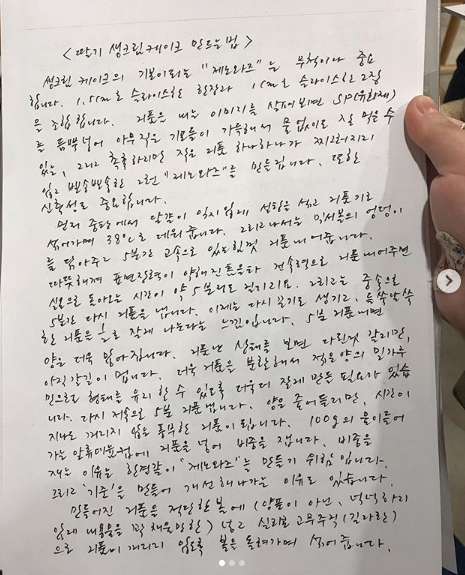 < 딸기 생크림 케이크 만드는 법 >
생크림 케이크의 기본이되는 "제노와즈"는 무척이나 중요
합니다. 1.5cm로 슬라이스한 한장과 1cm로 슬라이스한 2장
을 조합합니다. 거품을 내는 이미지를 살펴보면 SP(유화제)
를 듬뿍넣어 아무직은 기포들이 가득해서 물 없이도 잘 먹을 수
있을, 그리고 촉촉하지만 작은 거품 하나하나가 찌그러지지
않고 뽀송뽀송한 그런 "제노와즈"를 만듭니다. 또한
신축성도 중요합니다.
먼저 중탕에서 달걀이 익지않게 설탕을 섞고 거품기로
섞어가며 38℃로 데워줍니다. 그리고나서는 믹서볼의 엉덩이
를 닦아주고 5분간 고속으로 있는힘껏 거품내어줍니다.
따뜻하게 표면장력이 약해진 흰자 전속력으로 거품내어주면
실온으로 돌아오는 시간이 약 5분정도 걸리지요. 그리고는 중속으로
5분간 다시 거품을 냅니다. 이제는 다시 공기로 생기고, 들쑥날쑥
한 거품을 잘게 나눈다는 느낌입니다. 5분 거품내면
양은 더욱 많아집니다. 거품난 상태를 보면 다된것 같지만,
아직갈길이 멉니다. 더욱 거품을 분할해서 적은양의 밀가루
만으로 형태를 유지할 수 있도록 더욱더 잘게 만들 필요가 있습
니다. 다시 저속으로 5분 거품냅니다. 양은 줄어들지만, 시간이
지나도 꺼지지 않을 풍부한 거품이 됩니다. 100g의 물이들어
가는 알류미늄컵에 거품을 넣어 비중을 잽니다. 비중을
재는 이유는 한결같이 '제노와즈'를 만들기 위함 입니다.
그리고 '기준'을 만들어 개선해나가는 이유도 있습니다.
만들어진 거품을 적당한 볼에 (양푼이 아닌, 넉넉하지
않게 내용물을 꽉 채울만한) 넣고 실리콘 고무주걱(길다란)
으로 거품이 꺼지지 않도록 볼을 돌려가며 섞어줍니다.